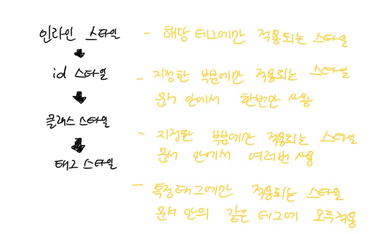 인라인 스타일 - 해당 태그에만 적용되는 스타일
id 스타일 - 지정한 부분에만 적용되는 스타일
문서 안에서 한번만 사용
클래스 스타일 - 지정한 부분에만 적용되는 스타일
문서 안에서 여러번 사용
태그 스타일 - 특정태그에만 적용되는 스타일
문서 안의 같은 태그에 모두적용